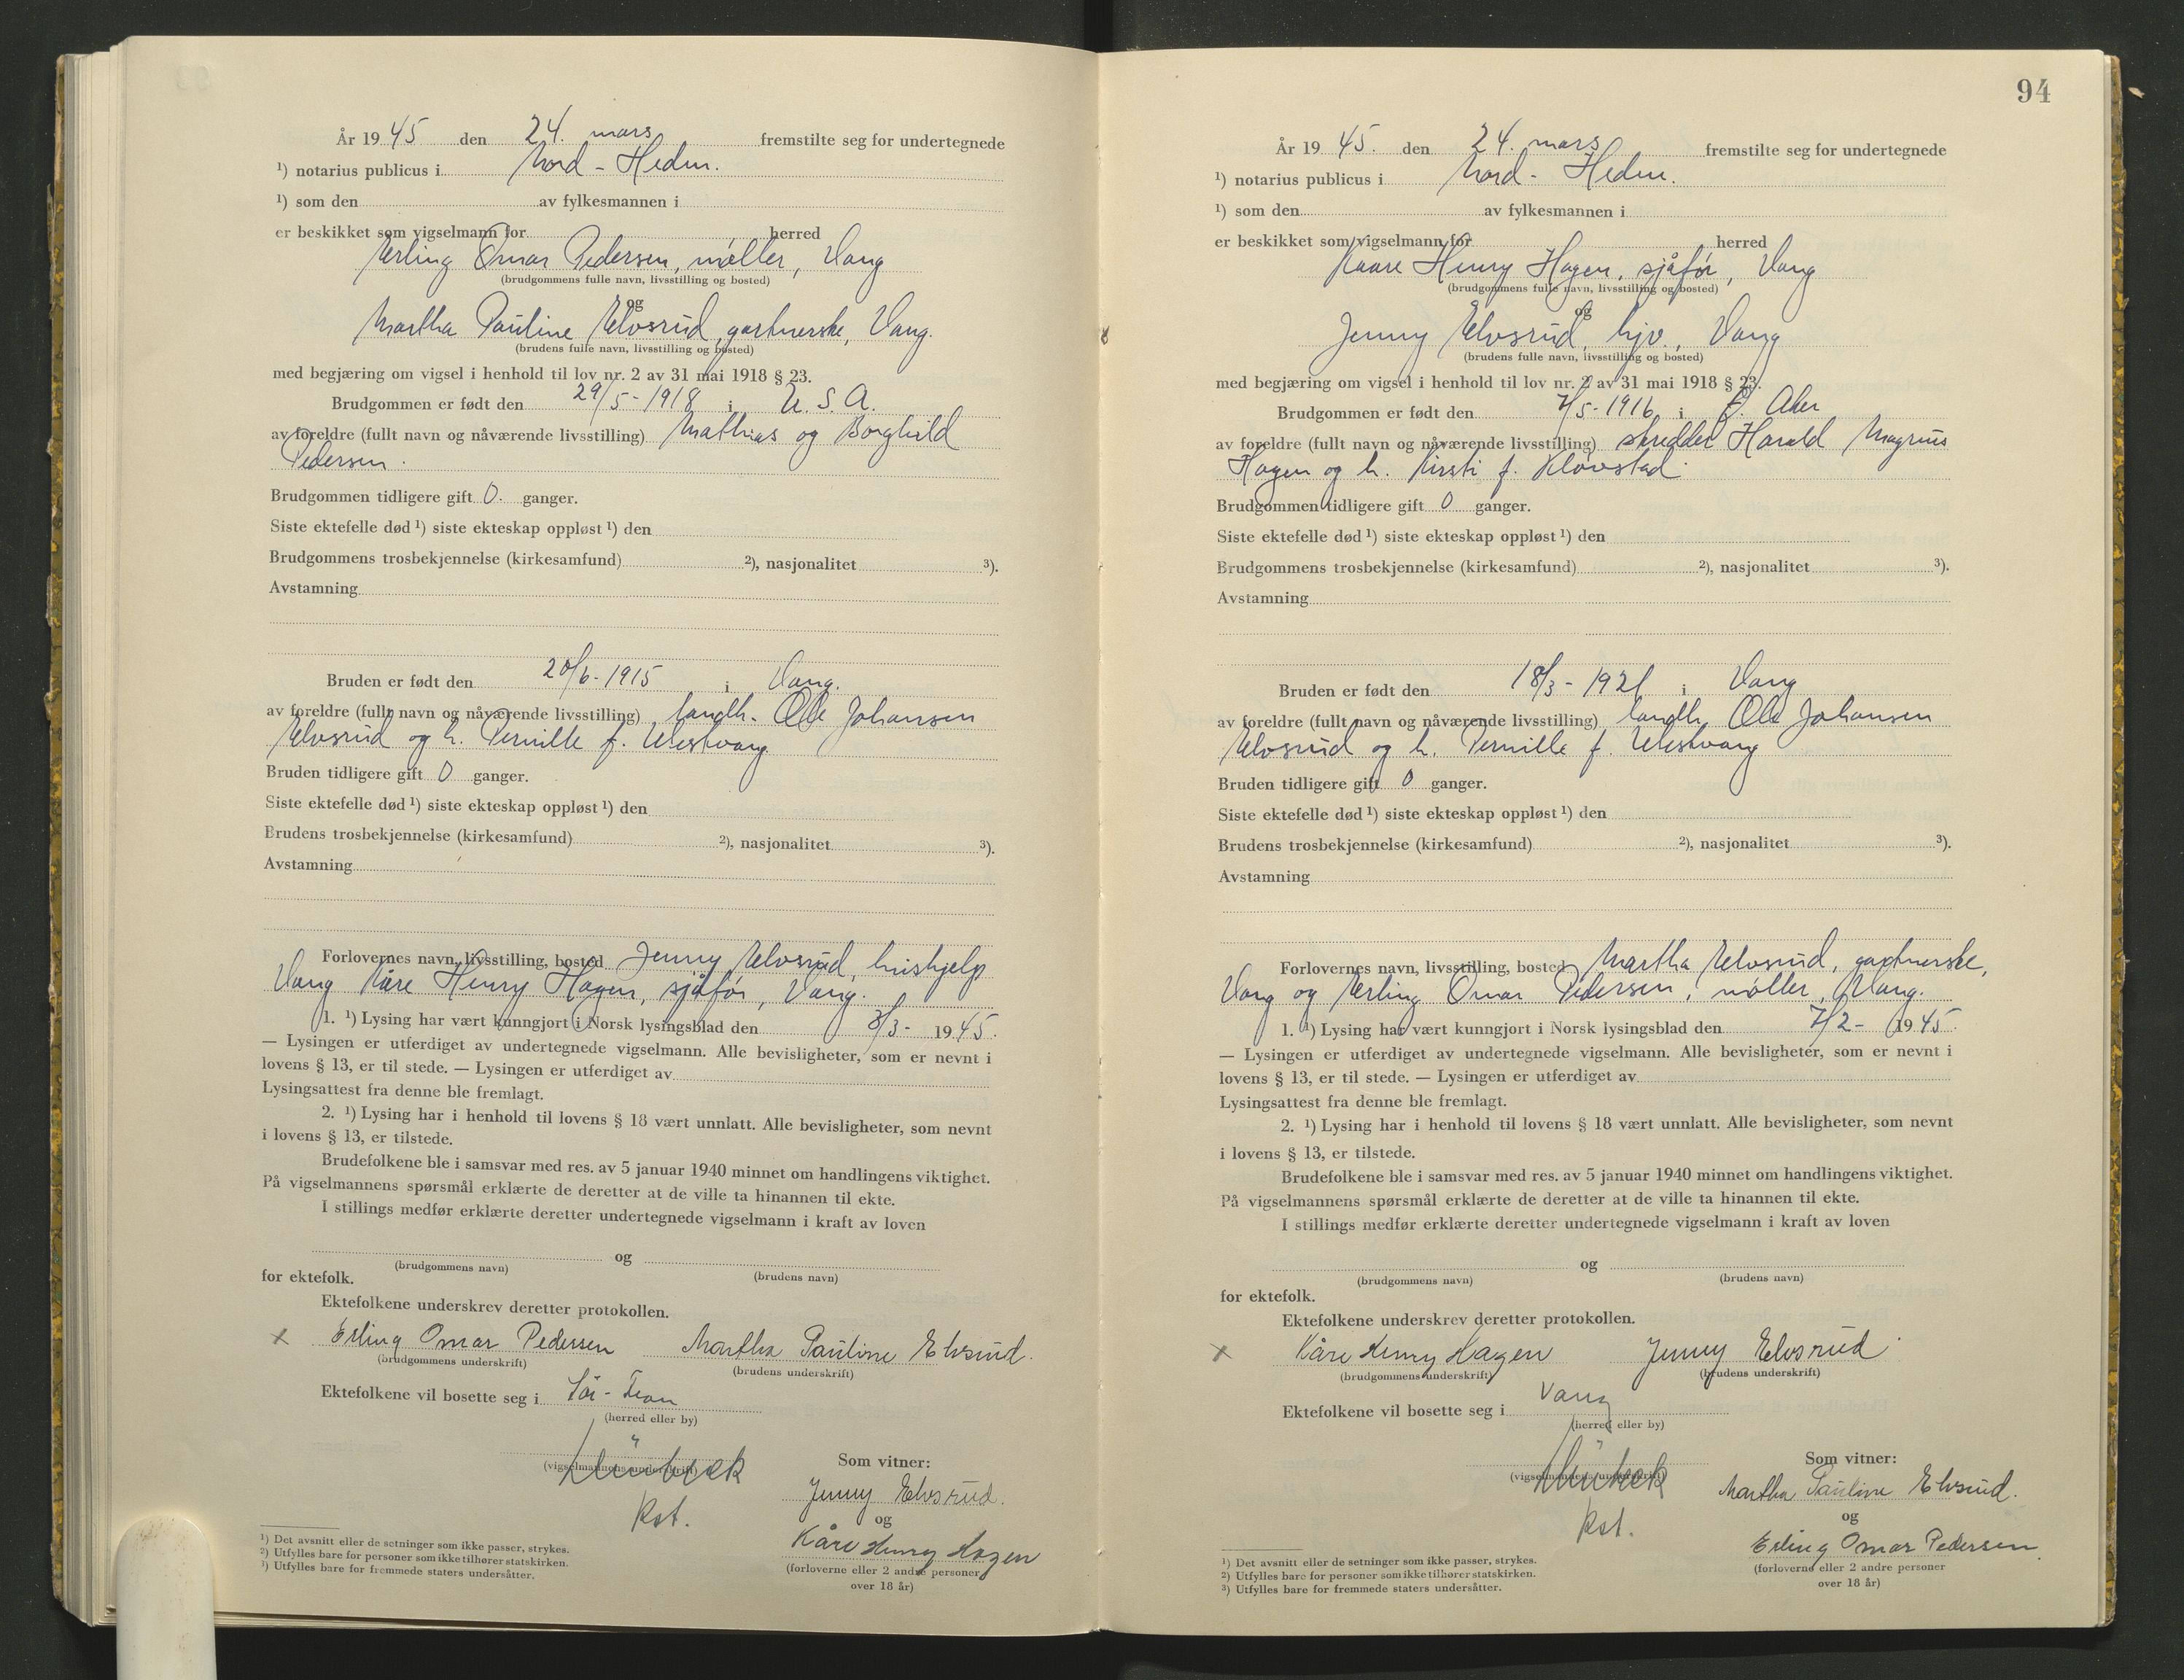 År 19 45 den 24. mars fremstilte seg for undertegnede
¹) notarius publicus i Nord - Hedm.
¹) som den av fylkesmannen i
er beskikket som vigselmann for herred
Erling Omar Pedersen, møller, Vang
(brudgommens fulle navn, livsstilling og bosted)
og
Martha Pauline Elvsrud, gartnerske, Vang.
(brudens fulle navn, livsstilling og bosted)
med begjæring om vigsel i henhold til lov nr. 2 av 31 mai 1918 § 23.
Brudgommen er født den 29/5 - 1918 i U. S. A.
av foreldre (fullt navn og nåværende livsstilling) Mathias og Borghild
Pedersen.
Brudgommen tidligere gift 0. ganger.
Siste ektefelle død ¹) siste ekteskap oppløst ¹) den
Brudgommens trosbekjennelse (kirkesamfund) ²), nasjonalitet ³).
Avstamning
Bruden er født den 20/6 - 1915 i Vang.
av foreldre (fullt navn og nåværende livsstilling) landh. Ole Johansen
Elvsrud og h. Pernille f. Westvang
Bruden tidligere gift 0 ganger.
Siste ektefelle død ¹) siste ekteskap oppløst ¹) den
Brudens trosbekjennelse (kirkesamfund) ²), nasjonalitet ³).
Avstamning
Forlovernes navn, livsstilling, bosted Jenny Elvsrud, hushjelp
Vang Kåre Henry Hagen, sjåfør, Vang.
1. ¹) Lysing har vært kunngjort i Norsk lysingsblad den 8/3 - 19 45.
— Lysingen er utferdiget av undertegnede vigselmann. Alle bevisligheter, som er nevnt i
lovens § 13, er til stede. — Lysingen er utferdiget av
Lysingsattest fra denne ble fremlagt.
2. ¹) Lysing har i henhold til lovens § 18 vært unnlatt. Alle bevisligheter, som nevnt
i lovens § 13, er tilstede.
Brudefolkene ble i samsvar med res. av 5 januar 1940 minnet om handlingens viktighet.
På vigselmannens spørsmål erklærte de deretter at de ville ta hinannen til ekte.
I stillings medfør erklærte deretter undertegnede vigselmann i kraft av loven
og
(brudgommens navn) (brudens navn)
for ektefolk.
Ektefolkene underskrev deretter protokollen.
x Erling Omar Pedersen Martha Pauline Elvsrud.
(brudgommens underskrift) (brudens underskrift)
Ektefolkene vil bosette seg i Sør - Fron
(herred eller by)
(vigselmannens underskrift)
Som vitner:
Jenny Elvsrud.
og
Kåre Henry Hagen
(forloverne eller 2 andre personer
over 18 år)
¹) Det avsnitt eller de setninger som ikke passer, strykes.
²) Utfylles bare for personer som ikke tilhører statskirken.
³) Utfylles bare for fremmede staters undersåtter.
94
År 19 45. den 24. mars fremstilte seg for undertegnede
¹) notarius publicus i Nord - Hedm.
¹) som den av fylkesmannen i
er beskikket som vigselmann for herred
Kaare Henry Hagen, sjåfør, Vang
(brudgommens fulle navn, livsstilling og bosted)
og
Jenny Elvsrud, hjv., Vang
(brudens fulle navn, livsstilling og bosted)
med begjæring om vigsel i henhold til lov nr. 2 av 31 mai 1918 § 23.
Brudgommen er født den 7/5 - 1916 i Ø. Aker
av foreldre (fullt navn og nåværende livsstilling) skredder Harald Magnus
Hagen og h. Kirsti f. Kløvstad
Brudgommen tidligere gift 0 ganger.
Siste ektefelle død ¹) siste ekteskap oppløst ¹) den
Brudgommens trosbekjennelse (kirkesamfund) ²), nasjonalitet ³).
Avstamning
Bruden er født den 18/3 - 1921 i Vang
av foreldre (fullt navn og nåværende livsstilling) landh. Ole Johansen
Elvsrud og h. Pernille f. Westvang
Bruden tidligere gift 0 ganger.
Siste ektefelle død ¹) siste ekteskap oppløst ¹) den
Brudens trosbekjennelse (kirkesamfund) ²), nasjonalitet ³).
Avstamning
Forlovernes navn, livsstilling, bosted Martha Elvsrud, gartnerske,
Vang og Erling Omar Pedersen, møller, Vang.
1. ¹) Lysing har vært kunngjort i Norsk lysingsblad den 7/2 - 19 45.
— Lysingen er utferdiget av undertegnede vigselmann. Alle bevisligheter, som er nevnt i
lovens § 13, er til stede. — Lysingen er utferdiget av
Lysingsattest fra denne ble fremlagt.
2. ¹) Lysing har i henhold til lovens § 18 vært unnlatt. Alle bevisligheter, som nevnt
i lovens § 13, er tilstede.
Brudefolkene ble i samsvar med res. av 5 januar 1940 minnet om handlingens viktighet.
På vigselmannens spørsmål erklærte de deretter at de ville ta hinannen til ekte.
I stillings medfør erklærte deretter undertegnede vigselmann i kraft av loven
og
(brudgommens navn) (brudens navn)
for ektefolk.
Ektefolkene underskrev deretter protokollen.
x Kåre Henry Hagen Jenny Elvsrud
(brudgommens underskrift) (brudens underskrift)
Ektefolkene vil bosette seg i Vang
(herred eller by)
(vigselmannens underskrift)
Som vitner:
Martha Pauline Elvsrud.
og
Erling Omar Pedersen
(forloverne eller 2 andre personer
over 18 år)
¹) Det avsnitt eller de setninger som ikke passer, strykes.
²) Utfylles bare for personer som ikke tilhører statskirken.
³) Utfylles bare for fremmede staters undersåtter.